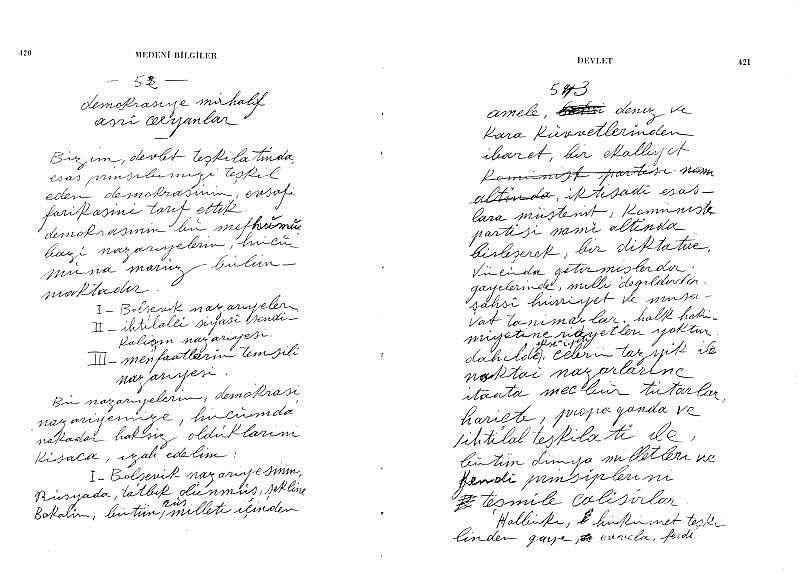 420
MEDENİ BİLGİLER
— 52 —
demokrasiye muhalif
asrî cereyanlar
Bizim, devlet teşkilatında
esas prensibimizi teşkil
eden demokrasinin, evsafı
farikasını tarif ettik.
demokrasinin bu mefhumu
bazı nazariyelerin, hücu-
muna maruz bulun-
maktadır.
I — Bolşevik nazariyeleri
II — ihtilalci siyasî sendi-
kalizm nazariyesi.
III — menfaatlerin temsili
nazariyesi.
Bu nazariyelerin, demokrasi
nazariyemize, hücumda
nekadar haksız olduklarını
kısaca, izah edelim:
I — Bolşevik nazariyesinin,
Rusyada, tatbik olunmuş, şekline
bakalım, bütün rus milleti içinden
DEVLET
421
543
amele, deniz ve
kara kuvvetlerinden
ibaret, bir ekalliyet
komünist partisi namı
altında, iktisadî esas-
lara müstenit, komünist
partisi namı altında
birleşerek, bir diktatör
vücuda getirmişlerdir.
gayelerinde, millî değildirler.
şahsî hürriyet ve müsa-
vat tanımazlar. halk haki-
miyetine riayetleri yoktur.
dahilde, ekseriyeti cebir tazyik ile
noktai nazarlarına
itaata mecbur tutarlar,
hariçte, propaganda ve
ihtilal teşkilatı ile,
bütün dünya milletleri ve
kendi prensiplerini
teşmile çalışırlar.
Halbuki, hükümet teşki-
linden gaye, evvela, ferdi